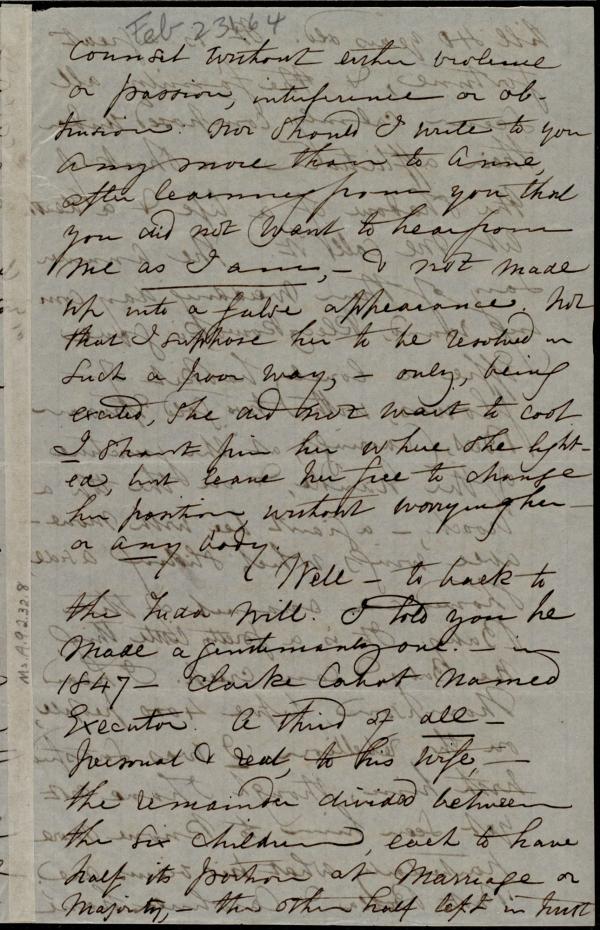 Feb 23/64
Counsel without either violence
or passion, interference or ob-
trusion. Nor should I write to you
any more than to Anne,
after learning from you that
you did not want to hear from
me as I am, - & not made
up into a false appearance. Not
that I suppose her to be resolved in
such a poor way, - only, being
excited, she did not want to cool
I shan't pin her where she light-
ed, but leave her free to change
her position, without worrying her -
or any body.
Well - to back to
the will. I told you he
made a gentlemanly one. - in
1847 - Clarke Cabot named
Executor. A third of all -
personal & real, to his wife, -
the remainder divided between
the six children, each to have
half its portion at Marriage or
Majority, - the other half left in trust
Ms. A.9.2.32.8